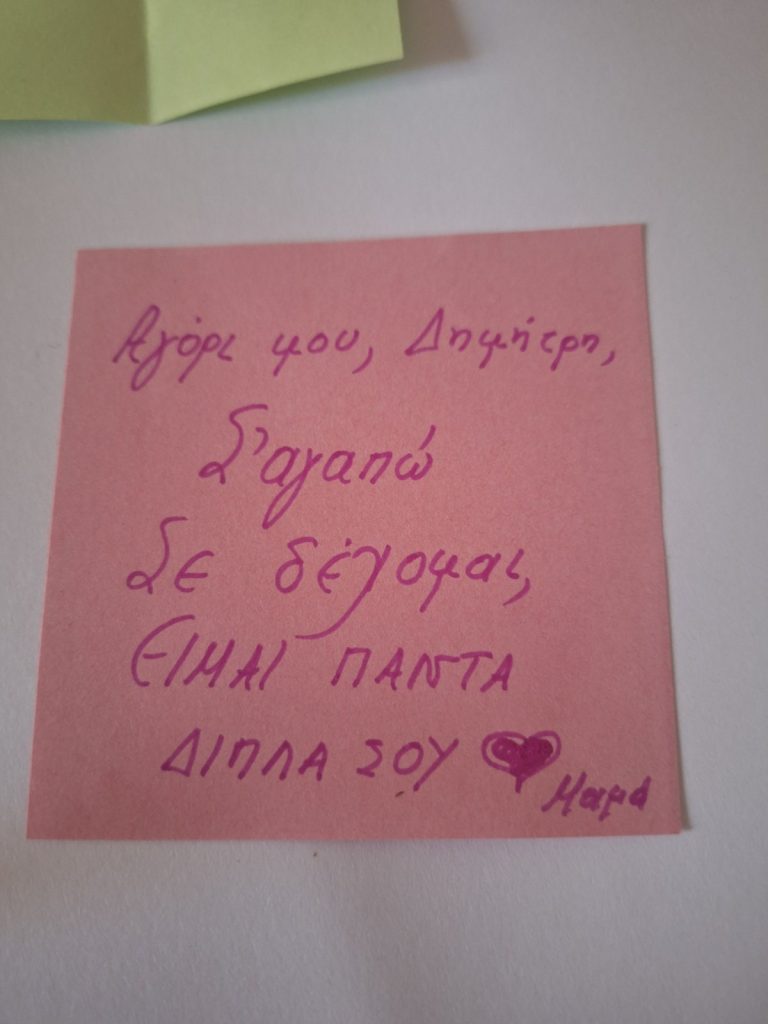 Αγόρι μου, Δημήτρη,
Σ'αγαπώ
Σε δέχομαι,
ΕΙΜΑΙ ΠΑΝΤΑ
ΔΙΠΛΑ ΣΟΥ
Μαμά